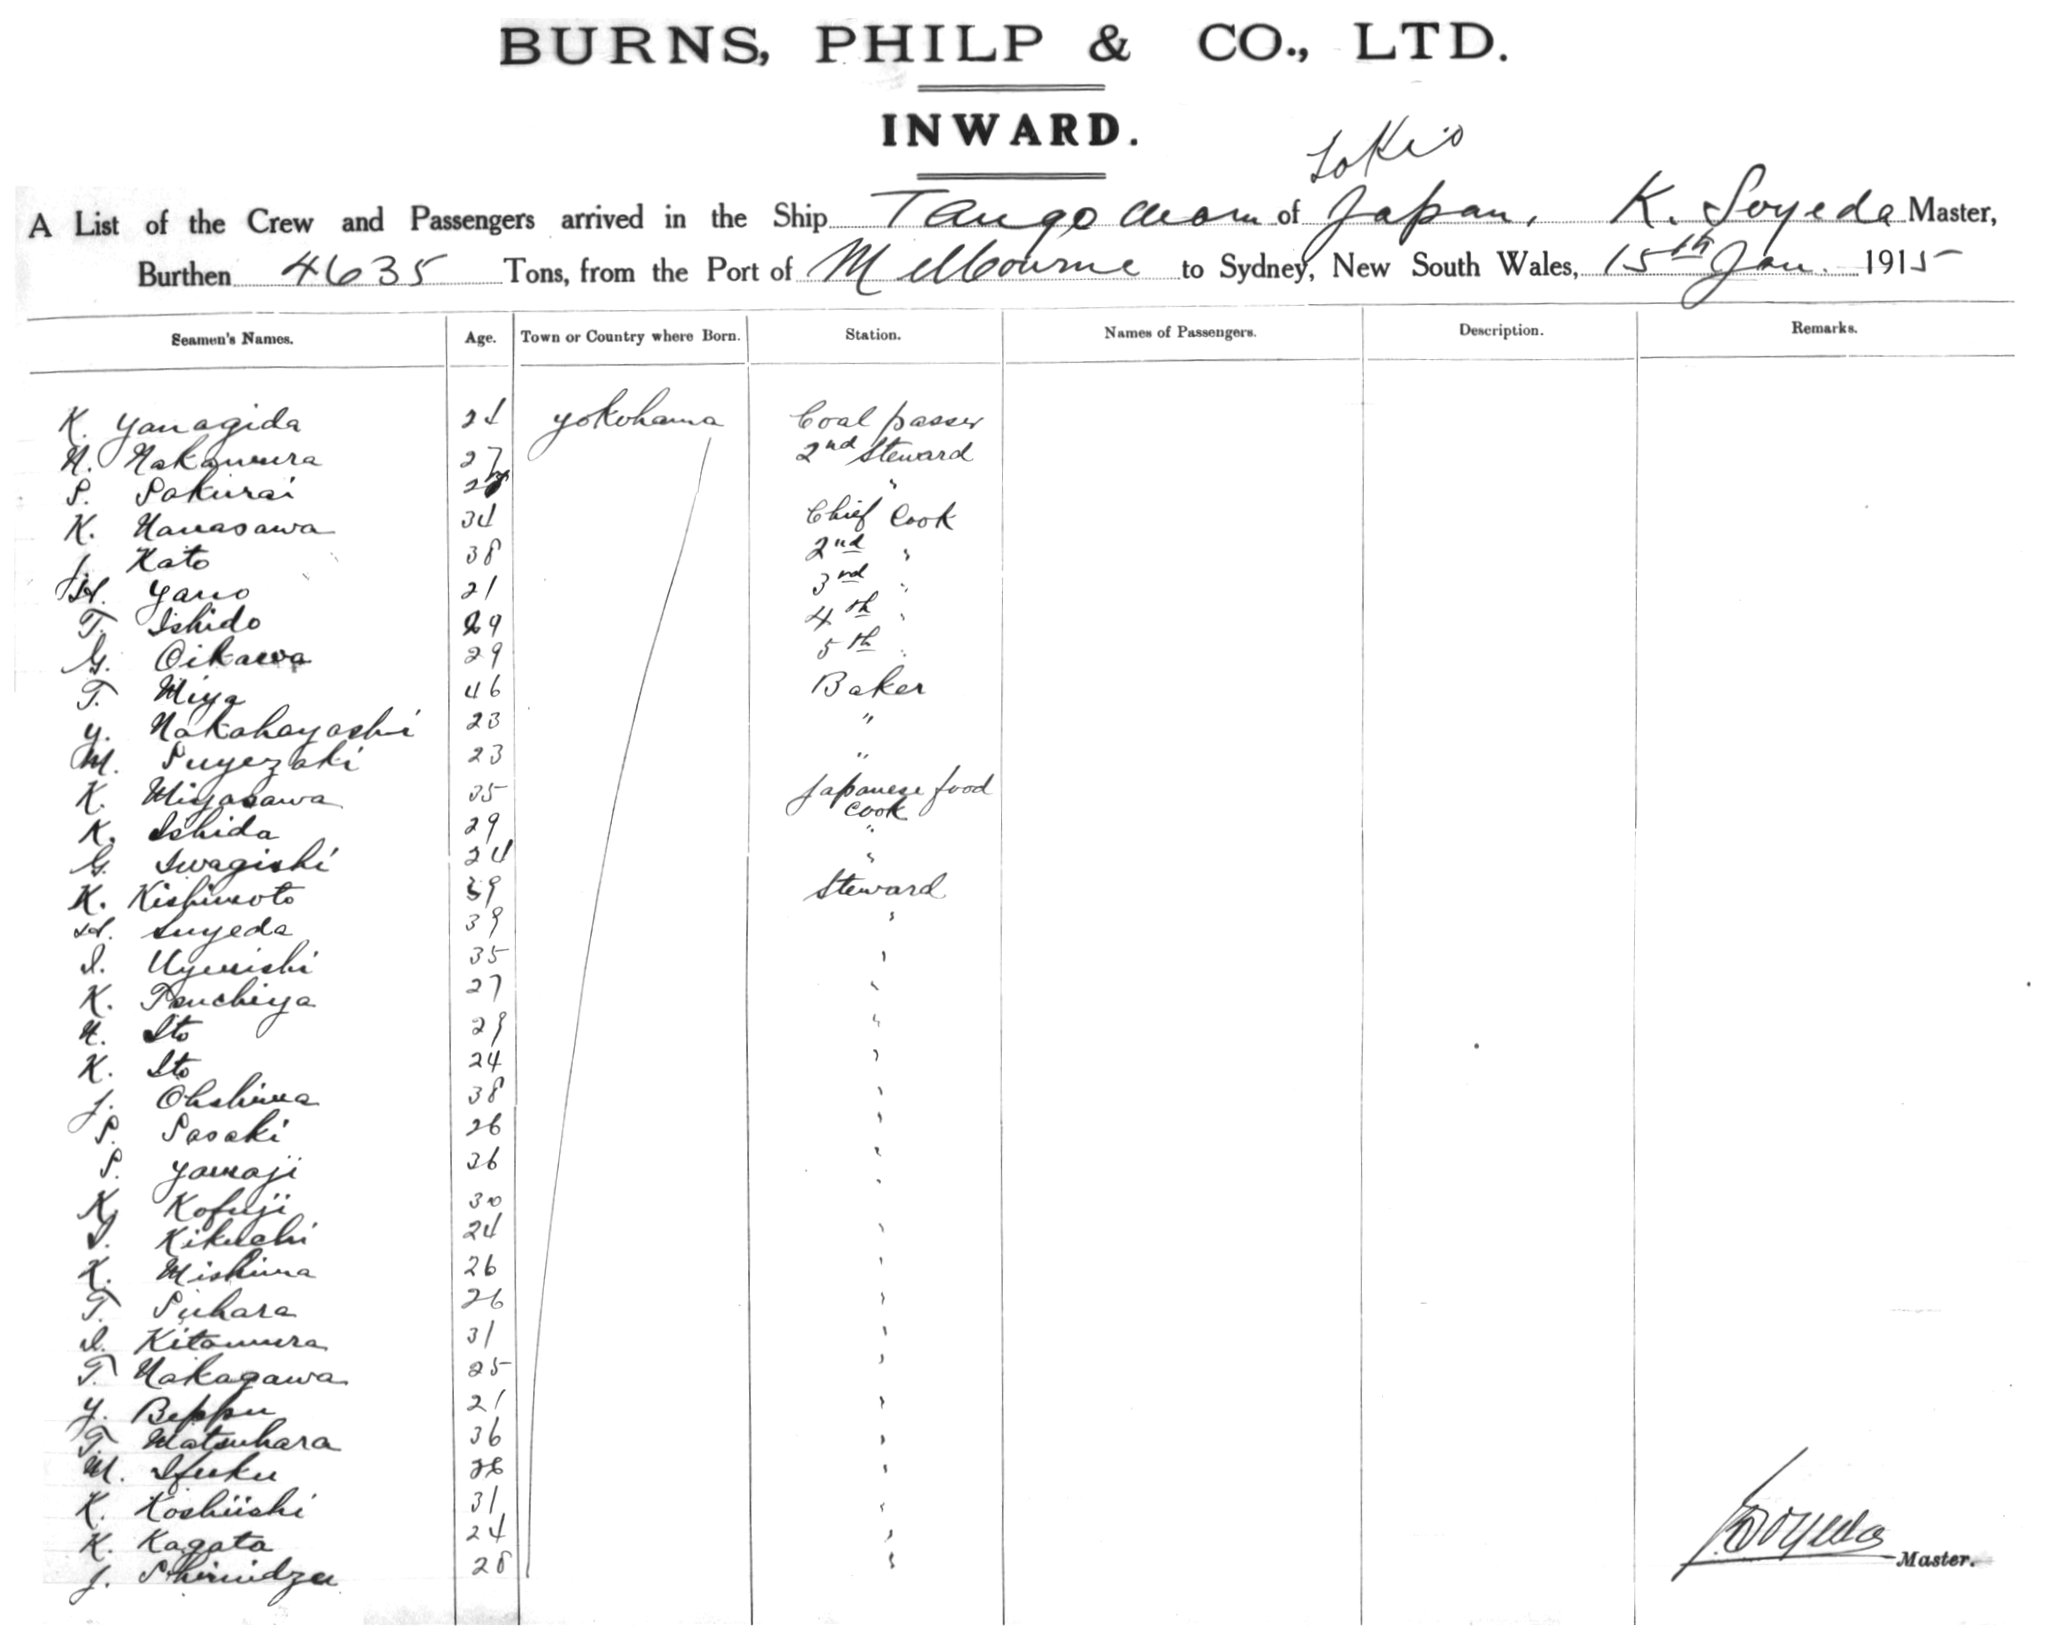 BURNS, PHILP & CO., LTD.
INWARD.
Tokio
A List of the Crew and Passengers arrived in the Ship Tango Maru of Japan, K. Soyeda Master,
Burthen 4635 Tons, from the Port of Melbourne to Sydney, New South Wales, 15th Jan. 1915
Seamen's Names. Age. Town or Country where Born. Station. Names of Passengers. Description. Remarks.
K. Yanagida 24 Yokohama Coal passer
N. Nakamura 27 2nd Steward
S. Sakurai "
K. Hanasawa 34 Chief Cook
J. Kato 38 2nd "
H. Yano 21 3rd "
T. Ishido 29 4th "
G. Oikawa 29 5th "
T. Miya 46 Baker
Y. Nakabayashi 23 "
M. Suyezaki 23 "
K. Miyasawa 35 Japanese food
cook
K. Ishida 29 "
G. Iwagishi 24 "
K. Kishimoto 39 Steward
H. Suyeda 39 "
I. 35 "
K. Tsuchiya 27 "
N. Ito 29 "
K. Ito 24 "
J. Ohshima 38 "
S. Sasaki 26 "
S. Yamaji 36 "
K. Kofuji 30 "
I. Kikuchi 24 "
K. Mishima 26 "
T. Suhara 26 "
I. Kitamura 31 "
T. Nakagawa 25 "
Y. Beppu 21 "
T. Matsuhara 36 "
M. Ifuku "
K. Koshiishi 31 "
K. Kagata 24 "
J. Shimidzu 28 "
K Soyeda Master.